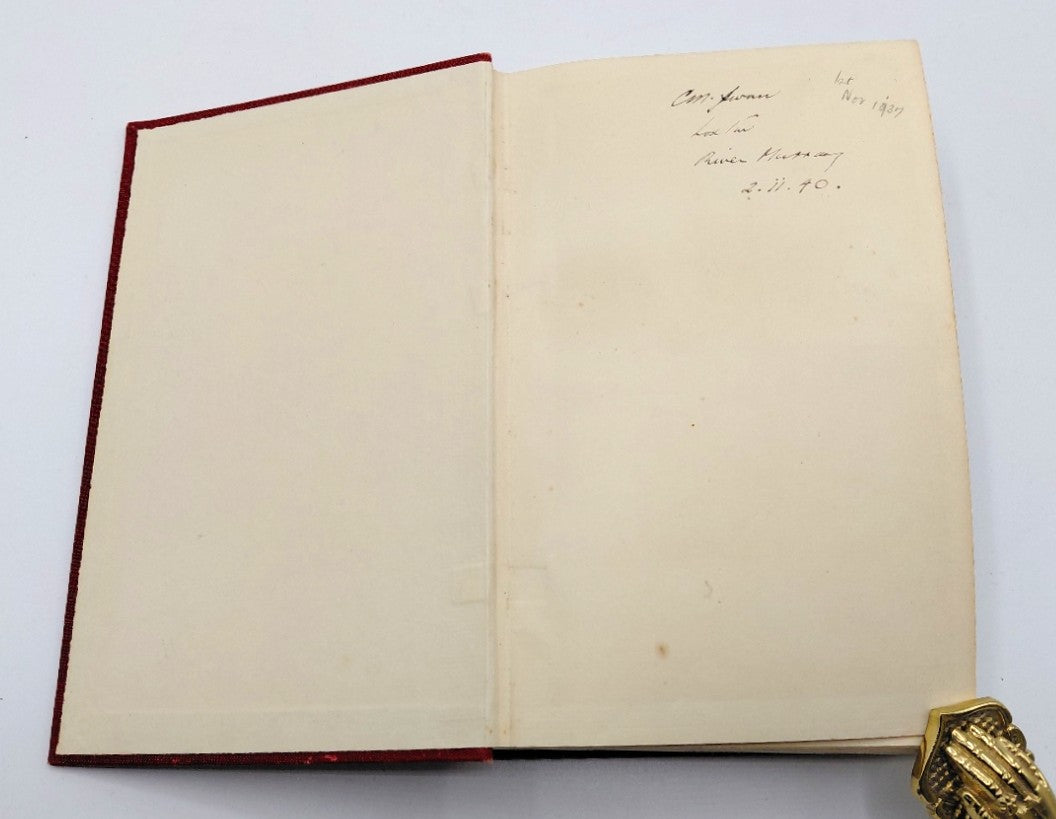 C.M. Swan
River Murray
2.11.40.
1st
Nov 1937